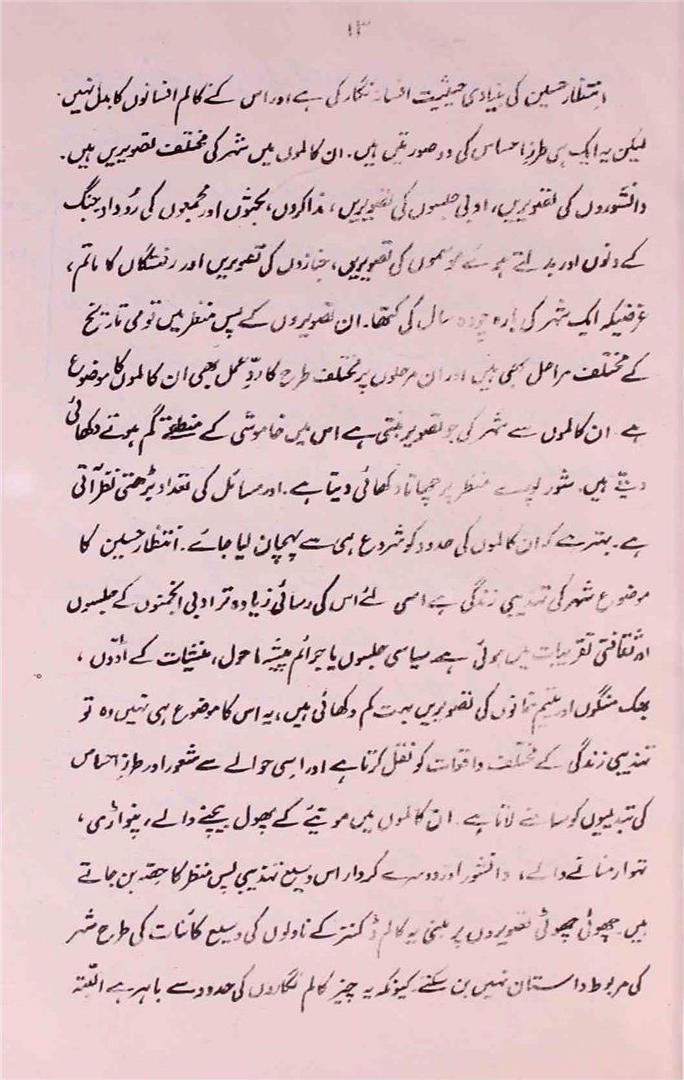 ۱۳
انتظار حسین کی بنیادی حیثیت افسانہ نگار کی ہے اور اس کے کالم افسانوں کا بدل نہیں۔
لیکن یہ ایک ہی طرزِ احساس کی دو صورتیں ہیں۔ ان کالموں میں شہر کی مختلف تصویریں ہیں۔
دانشوروں کی تصویریں، ادبی جلسوں کی تصویریں، مذاکروں، بحثوں اور مجمعوں کی رُوداد جنگ
کے دنوں اور بدلتے ہوئے موسموں کی تصویریں، جنازوں کی تصویریں اور رفتگاں کا ماتم،
غرضیکہ ایک شہر کی بارہ چودہ سال کی کتھا۔ ان تصویروں کے پس منظر میں قومی تاریخ
کے مختلف مراحل بھی ہیں اور ان مرحلوں پر مختلف طرح کا ردِّ عمل بھی ان کالموں کا موضوع
ہے۔ ان کالموں سے شہر کی جو تصویر بنتی ہے اس میں خاموشی کے منطقے گم ہوتے دکھائی
دیتے ہیں۔ شور پورے منظر پر چھاتا دکھائی دیتا ہے۔ اور مسائل کی تعداد بڑھتی نظر آتی
ہے۔ بہتر ہے کہ ان کالموں کی حدود کو شروع ہی سے پہچان لیا جائے۔ انتظار حسین کا
موضوع شہر کی تہذیبی زندگی ہے اسی لئے اس کی رسائی زیادہ تر ادبی انجمنوں کے جلسوں
اور ثقافتی تقریبات میں ہوئی ہے۔ سیاسی جلسوں یا جرائم پیشہ ماحول، منشیات کے اڈّوں،
بھک منگوں اور یتیم خانوں کی تصویریں بہت کم دکھائی ہیں، یہ اس کا موضوع ہی نہیں وہ تو
تہذیبی زندگی کے مختلف واقعات کو نقل کرتا ہے اور اسی حوالے سے شعور اور طرزِ احساس
کی تبدیلیوں کو سامنے لاتا ہے۔ ان کالموں میں موتیئے کے پھول بیچنے والے، پنواڑی،
تہوار منانے والے، دانشور اور دوسرے کردار اس وسیع تہذیبی پس منظر کا حصّہ بن جاتے
ہیں۔ چھوٹی چھوٹی تصویروں پر مبنی یہ کالم ڈکنز کے ناولوں کی وسیع کائنات کی طرح شہر
کی مربوط داستان نہیں بن سکتے۔ کیونکہ یہ چیز کالم نگاروں کی حدود سے باہر ہے البتّہ